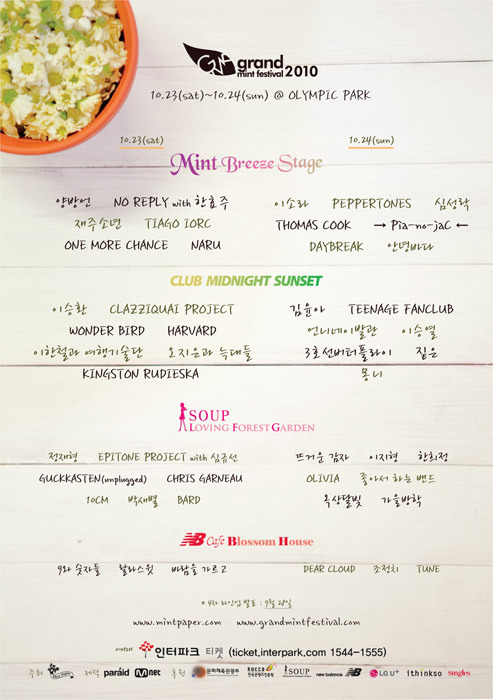 grand
mint festival 2010
10.23(sat)~10.24(sun) @ OLYMPIC PARK
10.23(sat)
10.24(sun)
Mint Breeze Stage
양방언 NO REPLY with 한효주
재주소년 TIAGO IORC
ONE MORE CHANCE NARU
이소라 PEPPERTONES 심성락
THOMAS COOK → Pia-no-jaC ←
DAYBREAK 안녕바다
CLUB MIDNIGHT SUNSET
이승환 CLAZZIQUAI PROJECT
WONDER BIRD HARVARD
이한철과 여행기술단 오지은과 늑대들
KINGSTON RUDIESKA
김윤아 TEENAGE FANCLUB
언니네이발관 이승열
3호선버터플라이 짙은
몽니
SOUP
LOVING FOREST GARDEN
정재형 EPITONE PROJECT with 심규선
GUCKKASTEN(unplugged) CHRIS GARNEAU
10CM 박새별 BARD
뜨거운 감자 이지형 한희정
OLIVIA 좋아서 하는 밴드
옥상달빛 가을방학
NB Cafe Blossom House
9와 숫자들 랄라스윗 바람을 가르고
DEAR CLOUD 조정치 TUNE
* 4차 라인업 발표 : 9월 28일
www.mintpaper.com www.grandmintfestival.com
예매처 인터파크 티켓 (ticket.interpark.com 1544-1555)
주최 제작 paraid mnet 후원 문화체육관광부 kocca SOUP new balance NB LG U+ ithinkso singles